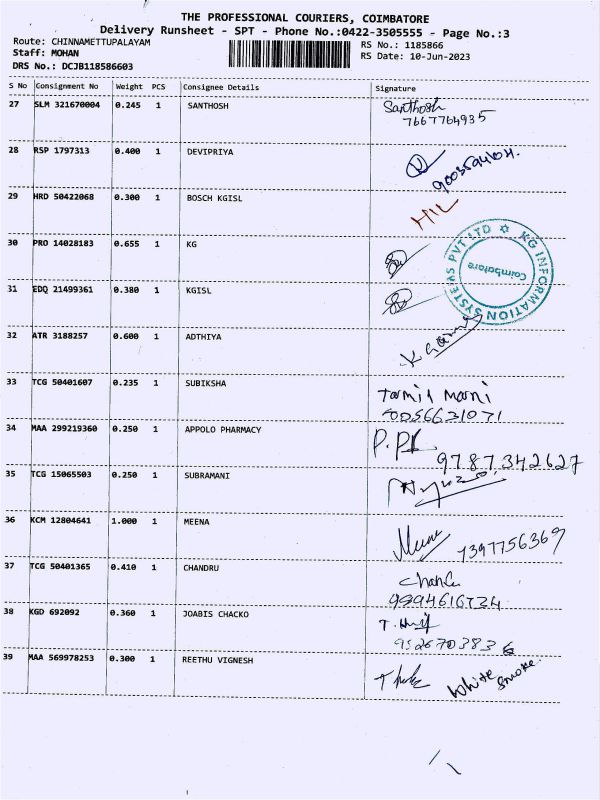 THE PROFESSIONAL COURIERS, COIMBATORE
Delivery Runsheet - SPT - Phone No.:0422-3505555 - Page No.:3
Route: CHINNAMETTUPALAYAM
Staff: MOHAN
DRS No.: DCJB118586603
RS No.: 1185866
RS Date: 10-Jun-2023
S No Consignment No Weight PCS Consignee Details Signature
27 SLM 321670004 0.245 1 SANTHOSH Santhosh
7667764935
28 RSP 1797313 0.400 1 DEVIPRIYA
29 HRD 50422068 0.300 1 BOSCH KGISL
30 PRO 14028183 0.655 1 KG
KG INFORMATION SYSTEMS PVT LTD
Coimbatore
31 EDQ 21499361 0.380 1 KGISL
32 ATR 3188257 0.600 1 ADTHIYA
33 TCG 50401607 0.235 1 SUBIKSHA Tamil Mani
34 MAA 299219360 0.250 1 APPOLO PHARMACY
9787342627
35 TCG 15065503 0.250 1 SUBRAMANI
36 KCM 12804641 1.000 1 MEENA Meena 7397756369
37 TCG 50401365 0.410 1 CHANDRU
38 KGD 692092 0.360 1 JOABIS CHACKO
39 MAA 569978253 0.300 1 REETHU VIGNESH White smoke.